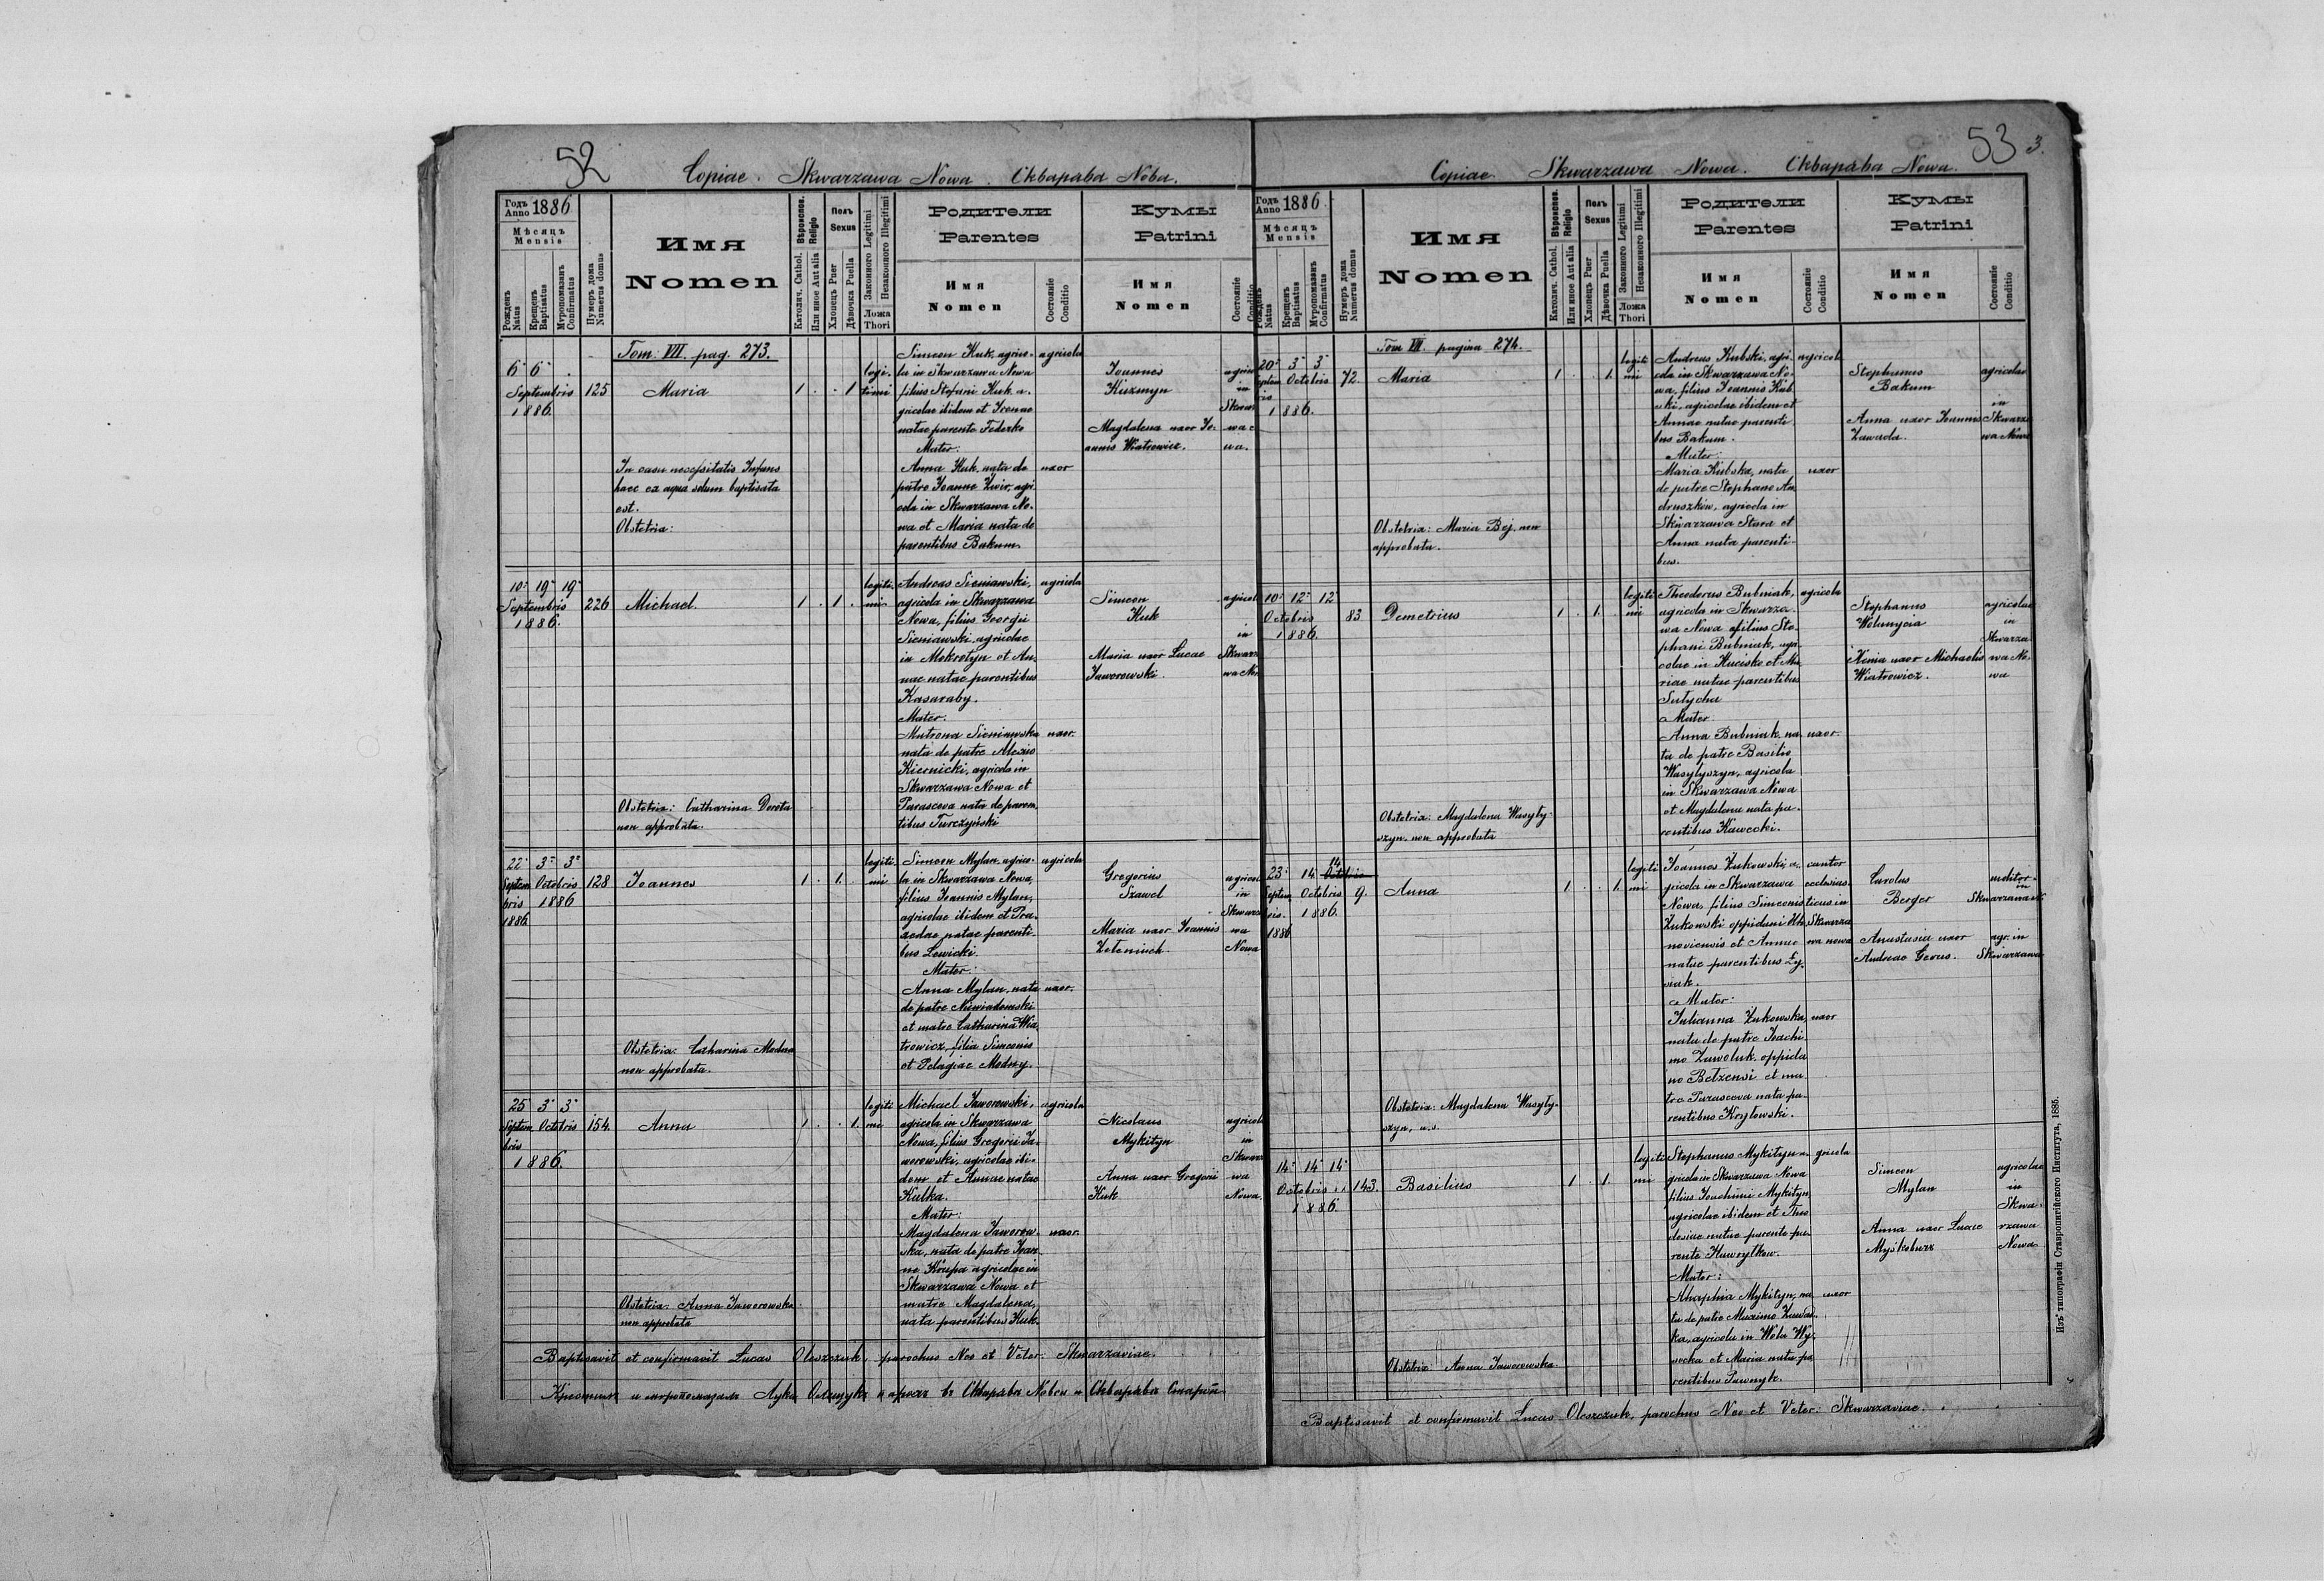 52
Copiae. Skwarzawa Nowa. Скварѣва Нова.
Годъ Anno 1886
Мѣсяцъ
Mensis
Рожденъ Natus
Крещенъ Baptisatus
Мѵропомазанъ Confirmatus
Нумеръ дома Numerus domus
Имя
Nomen
Вѣроиспов. Religio
Католич. Cathol.
Или иное Aut alia
Полъ
Sexus
Хлопецъ Puer
Дѣвочка Puella
Законного Legitimi
Незаконного Illegitimi
Ложа
Thori
Родители
Parentes
Имя
Nomen
Состояніе
Conditio
Кумы
Patrini
Имя
Nomen
Состояніе
Conditio
Tom: VII. pag. 273.
6 6
Septembris
1886.
125
Maria
1 1
legi-
timi
Simeon Kuk, agrico-
la in Skwarzawa Nowa
filius Stefani Kuk a-
gricolae ibidem et Irenae
natae parente Federko
Mater:
Anna Kuk, nata de
patre Joanne Zwir, agri
cola in Skwarzawa No-
wa et Maria nata de
parentibus Bakum
agricola
uxor
Joannes
Kuzmyn
Magdalena uxor Jo-
annis Wiatrowicz.
agricol
in
Skwar
In casu necessitatis Infans
haec ex aqua solum baptisata
est.
Obstetrix:
10 19 19
Septembris
1886.
226
Michael.
1 1
legiti-
mi
Andreas Sieniawski,
agricola in Skwarzawa
Nowa, filius Georgii
Sieniawski, agricolae
in Mokrotyn et An-
nae natae parentibus
Kasaraby.
Mater:
Matrona Sieniawska
nata de patre Alexio
Kiernicki, agricola in
Skwarzawa Nowa et
Parasceva nata de paren
tibus Turczyński
agricola
uxor.
Simeon
Kuk
Maria uxor Lucae
Jaworowski.
agricol
in
Skwarz
wa No
Obstetrix: Catharina Dorota
non approbata.
22 3 3
Septem Octobris
bris 1886
1886
128
Joannes
1 1
legiti
mi
Simeon Mylan, agrico-
la in Skwarzawa Nowa,
filius Joannis Mylan,
agricolae ibidem et Pra-
xedae natae parenti-
bus Lewicki.
Mater:
Anna Mylan, nata
de patre Niewiadomski
et matre Catharina Wia
trowicz, filia Simeonis
et Pelagiae Modny.
agricola
uxor.
Gregorius
Szawel
Maria uxor Joannis
agricol
in
Skwarz
wa
Nowa
Obstetrix: Catharina Modna
non approbata.
25 3 3
Septem Octobris
bris
1886.
154.
Anna
1 1.
legiti
mi
Michael Jaworowski,
agricola in Skwarzawa
Nowa, filius Gregorii Ja-
worowski, agricolae ibi-
dem et Annae natae
Kulka.
Mater:
Magdalena Jaworow-
ska, nata de patre Joan
ne Krupa agricolae in
Skwarzawa Nowa et
matre Magdalena,
nata parentibus Kuk.
agricola
uxor.
Nicolaus
Mykityn
Anna uxor Gregorii
Kuk
agricol
in
Skwarz
wa
Nowa.
Obstetrix: Anna Jaworowska
non approbata
Baptisavit et confirmavit Lucas Oleszczuk, parochus Neo et Veter: Skwarzaviae.
Крестилъ и миропомазалъ Лука Олещукъ парохъ въ Скварѣвѣ Новой и Скварѣвѣ Старой
53 3.
Copiae. Skwarzawa Nowa. Скварѣва Nowa.
Годъ Anno 1886.
Мѣсяцъ
Mensis
Рожденъ Natus
Крещенъ Baptisatus
Мѵропомазанъ Confirmatus
Нумеръ дома Numerus domus
Имя
Nomen
Вѣроиспов. Religio
Католич. Cathol.
Или иное Aut alia
Полъ
Sexus
Хлопецъ Puer
Дѣвочка Puella
Законного Legitimi
Незаконного Illegitimi
Ложа
Thori
Родители
Parentes
Имя
Nomen
Состояніе
Conditio
Кумы
Patrini
Имя
Nomen
Состояніе
Conditio
Tom VII. pagina 274.
20 3 3
Septem Octobris
bris
1886.
72.
Maria
1 1.
legiti
mi
Andreas Kubski, agri-
cola in Skwarzawa No-
wa, filius Joannis Kub
ski, agricolae ibidem et
Annae natae parenti
bus Bakum.
Mater:
Maria Kubska, nata
de patre Stephano An
druszków, agricola in
Skwarzawa Stara et
Anna nata parenti-
bus.
agricol
uxor
Stephanus
Bakum
Anna uxor Joannis
Zawada.
agricolae
in
Skwarza
wa Nowa
Obstetrix: Maria Bej, non
approbata.
10 12 12
Octobris
1886.
83
Demetrius
1 1.
legiti
mi
Theodorus Bubniak,
agricola in Skwarza-
wa Nowa filius Ste-
phani Bubniak, agri
colae in Kucisko et Ma
riae natae parentibus
Sutycha
Mater
Anna Bubniak, na-
ta de patre Basilio
Wasylyszyn, agricola
in Skwarzawa Nowa
et Magdalena nata pa-
rentibus Kawecki.
agricola
uxor
Stephanus
Wolanycia
Xenia uxor Michaelis
Wiatrowicz.
agricolae
in
Skwarza
wa No-
wa
Obstetrix: Magdalena Wasyły-
szyn, non approbata
23 14 14 Octobris
Septem Octobris
bris. 1886.
1886
9.
Anna
1 1
legiti
mi
Joannes Żukowski, a-
gricola in Skwarzawa
Nowa, filius Simeonis
Żukowski oppidani
noviensis et Annae
natae parentibus Ły-
siak.
Mater:
Julianna Żukowska,
nata de patre Joachi
mo Zawoluk, oppida
no Bełzensi et ma-
tre Parasceva nata pa-
rentibus Kryłowski.
cantor
ecclesias
ticus in
Skwarza
wa nowa
uxor
Carolus
Berger
Anastasia uxor
Andreae Gerus.
in
agr. in
Skwarzawa
Obstetrix: Magdalena Wasyły-
szyn, u.s.
14 14 14
Octobris
1886
143.
Basilius
1 1.
legiti
mi
Stephanus Mykityn a-
gricola in Skwarzawa Nowa
filius Joachimi Mykityn,
agricolae ibidem et Theo
dosiae natae parente pa-
rente Hawryłkow.
Mater:
Ahaphia Mykityn, na-
ta de patre Maximo Zawad
ka, agricola in Wola Wy-
socka et Maria nata pa
rentibus
gricola
uxor
Simeon
Mylan
Anna uxor Lucae
agricolae
in
Skwa-
rzawa
Nowa
Obstetrix: Anna Jaworowska
Baptisavit et confirmavit Lucas Oleszczuk, parochus Neo et Veter: Skwarzaviae.
Изъ типографіи Ставропигійского Института, 1885.